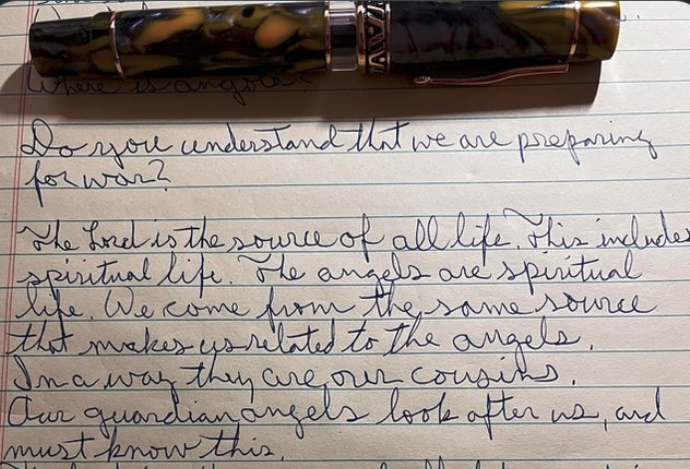 Where is angola?
Do you understand that we are preparing
for war?
The Lord is the source of all life. This includes
spiritual life. The angels are spiritual
life. We come from the same source
that makes us related to the angels.
In a way they are our cousins.
Our guardian angels look after us, and
must know this.